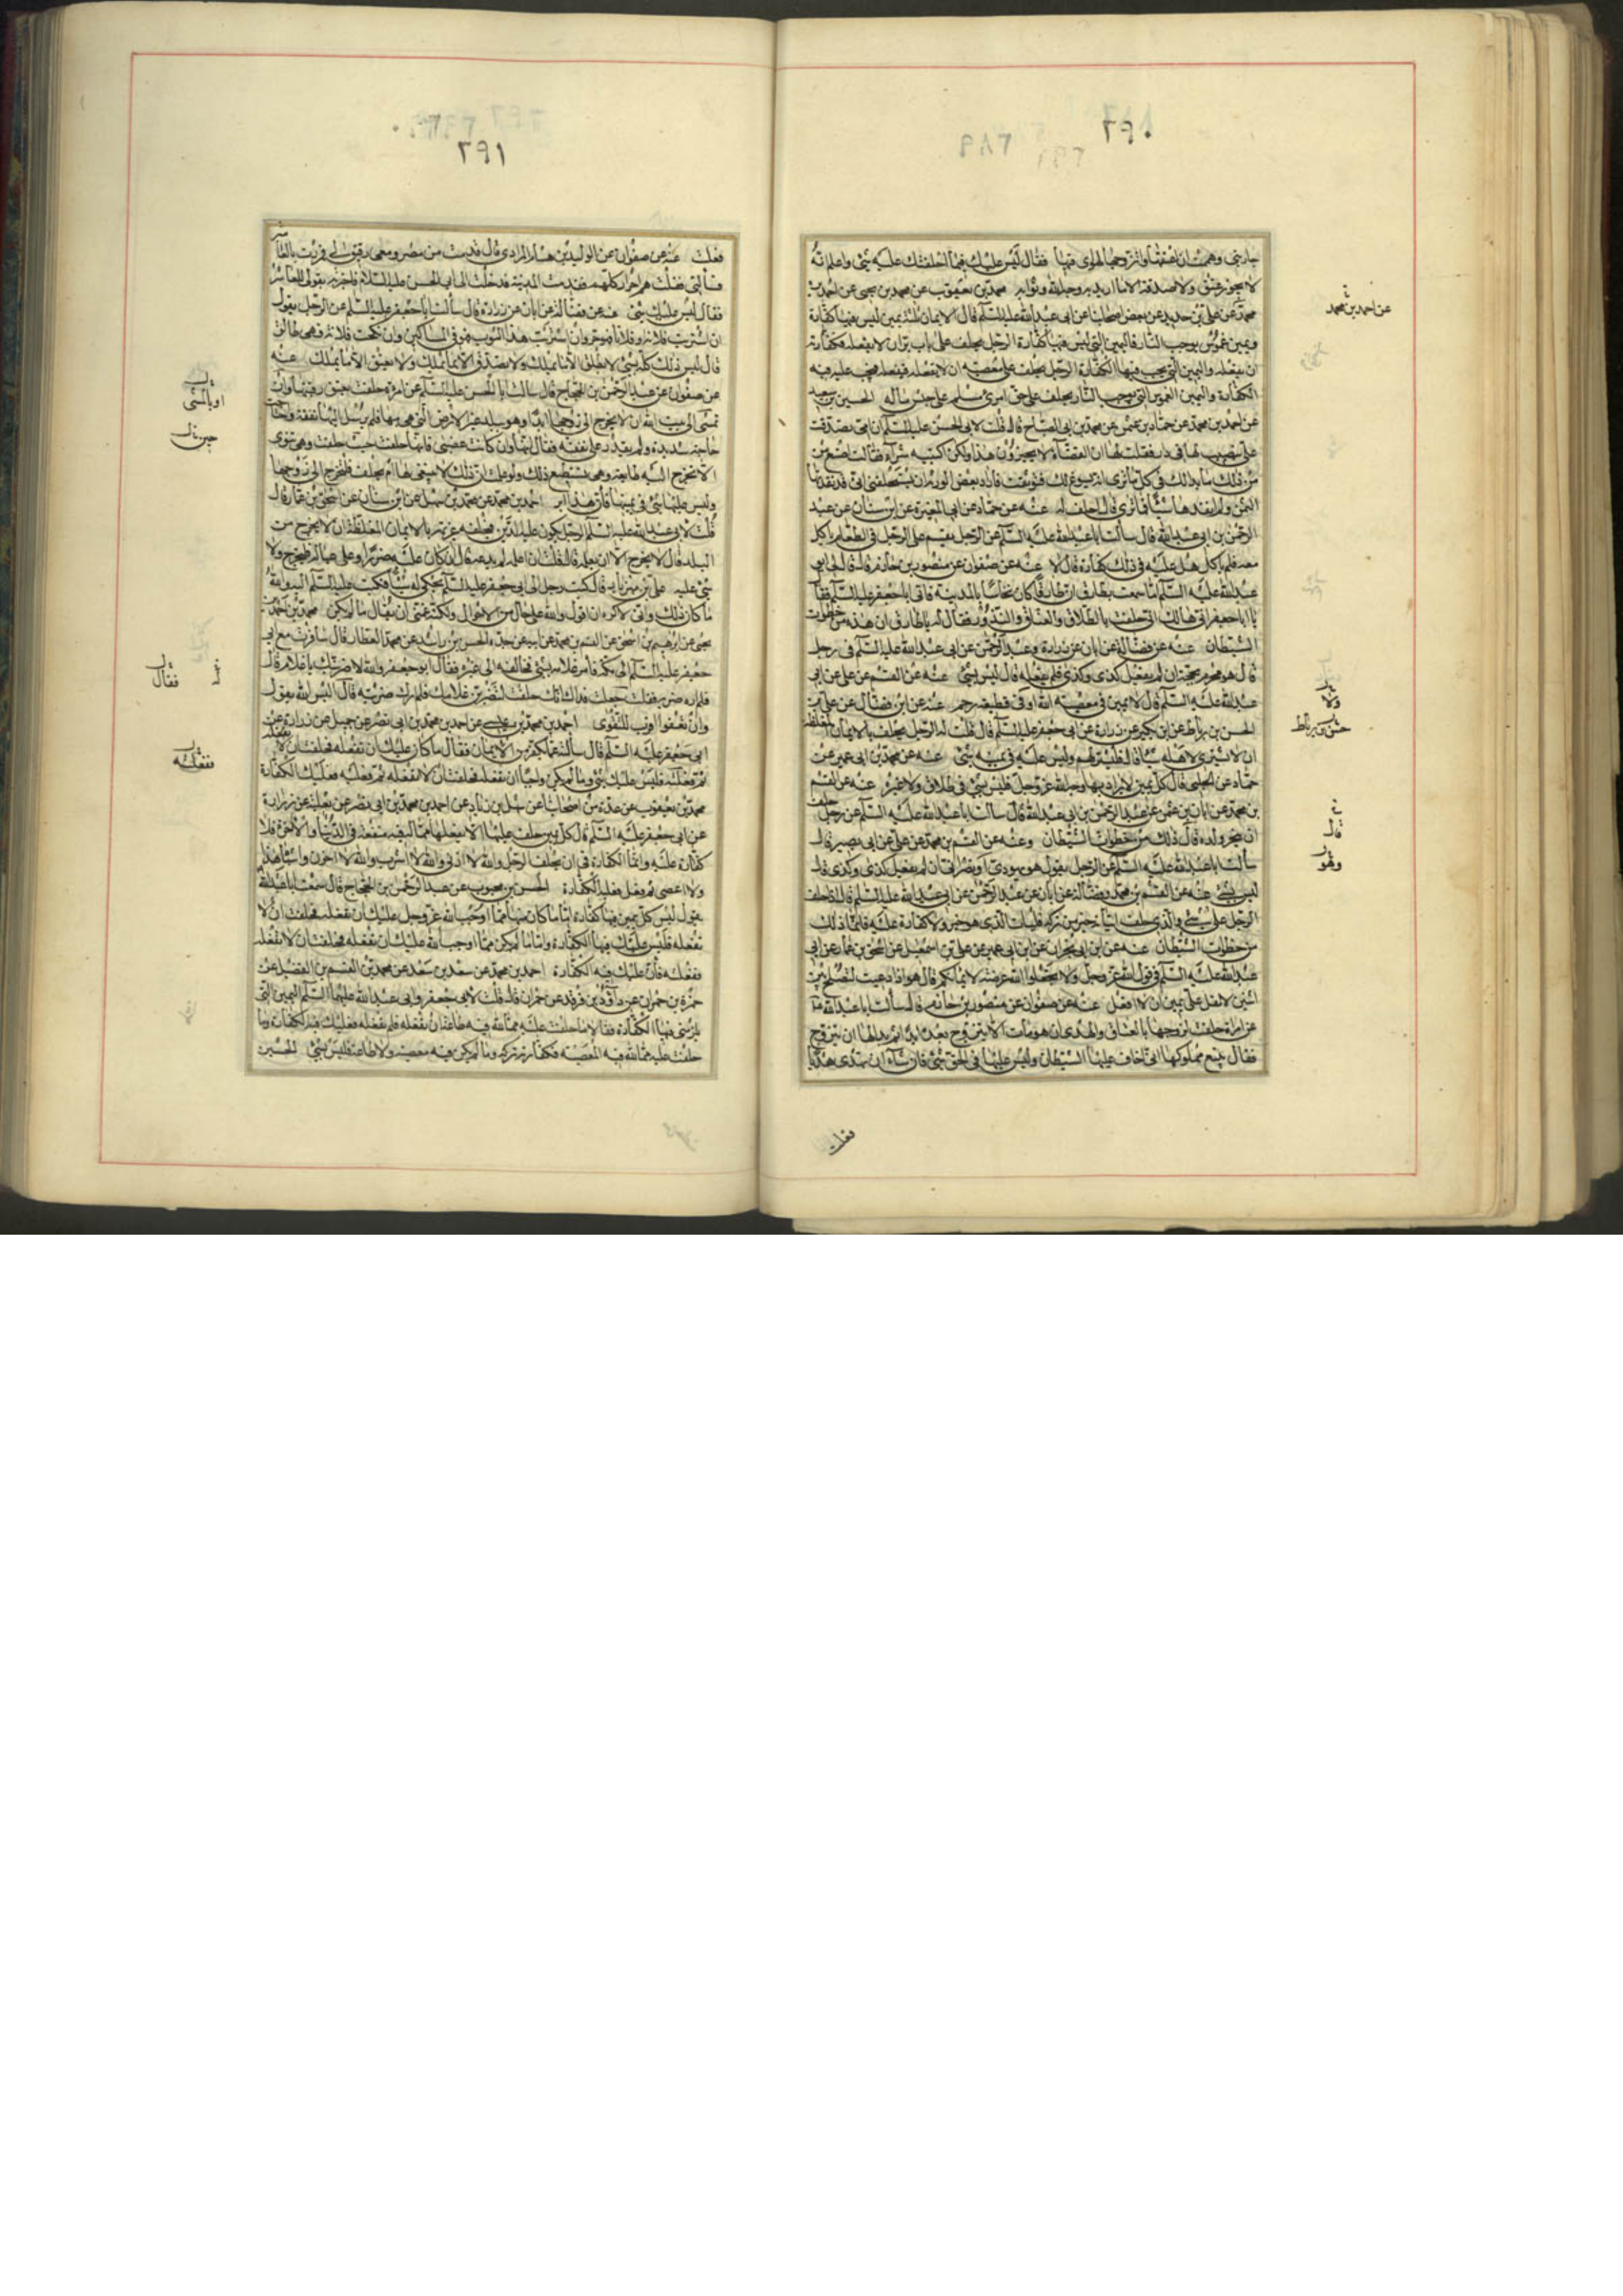 ٢٩٠
جاريتي وهممت ان اعتقها واتزوجها لهواى فيها فقال ليس عليك فيما احلفتك عليه شئ واعلم انه
لا يجوز عتق ولا صدقة الا ما اريد به وجه الله وثوابه محمد بن يعقوب عن محمد بن يحيى عن احمد بن
محمد عن علي بن حديد عن بعض اصحابنا عن ابي عبد الله عليه السلم قال الايمان ثلث يمين ليس فيها كفارة
ويمين غموس يوجب النار فاليمين التي ليس فيها كفارة الرجل يحلف على باب بر ان لا يفعله فكفارته
ان يفعله واليمين التي يجب فيها الكفارة الرجل يحلف على معصيه ان لا يفعله فيفعله فيجب عليه فيه
الكفارة واليمين الغموس التي يوجب النار يحلف على حق امرئ مسلم على حبس ماله الحسين بن سعيد
عن احمد بن محمد عن حماد بن عثمن عن محمد بن ابي الصباح قال قلت لابي الحسن عليه السلم ان امي تصدقت
علي بنصيب لها في دار فقلت لها ان القضاة لا يجيزون هذا ولكن اكتبيه شراء فقالت اصنع من
من ذلك ما بدا لك في كل ما ترى انه يسوغ لك فتوثقت فاراد بعض الورثة ان يستحلفني اني قد نقدتها
الثمن ولم انقدها شيئا فما ترى قال احلف له عنه عن حماد عن ابي المغيرة عن ابن سنان عن عبد
الرحمن بن ابي عبد الله قال سالت ابا عبد الله عليه السلم عن الرجل يقسم على الرجل في الطعام ياكل
معه فلم ياكل هل عليه في ذلك كفارة قال لا عنه عن صفوان عن منصور بن حازم قال قال لي ابو
عبد الله عليه السلم اما سمعت بطارق ان طارقا كان نخاسا بالمدينة فاتى ابا جعفر عليه السلم فقال
يا ابا جعفر اني هالك اني حلفت بالطلاق والعتاق والنذور فقال له يا طارق ان هذه من خطوات
الشيطان عنه عن فضالة عن ابان عن زرارة وعبد الرحمن عن ابي عبد الله عليه السلم في رجل
قال هو محرم بحجة ان لم يفعل كذى وكذى فلم يفعله قال ليس بشئ عنه عن القسم عن علي عن ابي
عبد الله عليه السلم قال لا يمين في معصية الله او في قطيعة رحم عنه عن ابن فضال عن علي بن
الحسن بن رباط عن ابن بكير عن زرارة عن ابي جعفر عليه السلم قال قلت له الرجل يحلف بالايمان المغلظة
ان لا يشترى لاهله شيئا قال فليشتر لهم وليس عليه في يمينه شئ عنه عن محمد بن ابي عمير عن
حماد عن الحلبي قال كل يمين لا يراد بها وجه الله عز وجل فليس بشئ في طلاق ولا غيره عنه عن القسم
بن محمد عن ابان بن عثمن عن عبد الرحمن بن ابي عبد الله قال سالت ابا عبد الله عليه السلم عن رجل حلف
ان ينحر ولده قال ذلك من خطوات الشيطان وعنه عن القسم بن محمد عن علي عن ابي بصير قال
سالت ابا عبد الله عليه السلم عن الرجل يقول هو يهودي او نصراني ان لم يفعل كذى وكذى قال
ليس بشئ عنه عن القسم بن محمد وفضالة عن ابان عن عبد الرحمن عن ابي عبد الله عليه السلم قال اذا حلف
الرجل على شئ والذي حلف اتيانه خير من تركه فليات الذي هو خير ولا كفارة عليه فانما ذلك
من خطوات الشيطان عنه عن ابن ابي نجران عن ابن ابي عمير عن علي بن اسمعيل عن اسحق بن عمار عن ابي
عبد الله عليه السلم في قول الله عز وجل ولا تجعلوا الله عرضة لايمانكم قال هو اذا دعيت لتصلح بين
اثنين لا تقل علي يمين ان لا افعل عنه عن صفوان عن منصور بن حازم قال سالت ابا عبد الله ع
عن امراة حلفت لزوجها بالعتاق والهدي ان هو مات الا تتزوج بعده ابدا ثم بدا لها ان تتزوج
فقال تبيع مملوكها اني اخاف عليها الشيطان وليس عليها في الحق شئ فان شاء ان تهدى هديا
فعلت
عن احمد بن محمد
ولا
حسن بن رباط
قال
وهو
٢٩١
فعلت عنه عن صفوان عن الوليد بن هشام المرادي قال قدمت من مصر ومعى رقيق لي فمررت بالعاشر
فسالني فقلت هم احرار كلهم فقدمت المدينة فدخلت الى ابي الحسن عليه السلام فاخبرته بقولي للعاشر
فقال ليس عليك شئ عنه عن فضالة عن ابان عن زرارة قال سالت ابا جعفر عليه السلم عن الرجل يقول
ان اشتريت فلانا او فلانة فهو حر وان اشتريت هذا الثوب فهو في المساكين وان نكحت فلانة فهى طالق
قال ليس ذلك كله بشئ لا يطلق الا ما يملك ولا يصدق الا ما يملك ولا يعتق الا ما يملك عنه
عن صفوان عن عبد الرحمن بن الحجاج قال سالت ابا الحسن عليه السلم عن امرءة حلفت بعتق رقيقها وان
تمشى الى بيت الله ان لا تخرج الى زوجها ابدا وهو ببلد غير الارض التي هي بها فلم يرسل اليها نفقة واحتاجت
حاجة شديدة ولم تقدر على نفقة فقال انها وان كانت غضبى فانها حلفت حيث حلفت وهي تنوى
الا تخرج اليه طايعة وهي تستطيع ذلك ولو علمت ان ذلك لا ينبغى لها لم تحلف فلتخرج الى زوجها
وليس عليها شئ في يمينها فان هذا ابر احمد بن محمد عن محمد بن سهل عن ابن سنان عن اسحق بن عمار قال
قلت لابي عبد الله عليه السلم الرجل يكون عليه الدين فيحلفه غريمه بالايمان المغلظة ان لا يخرج من
البلد قال لا يخرج الا ان يعلمه قال قلت ان اعلمه لم يدعه قال ان كان عليه ضررا وعلى عياله فليخرج ولا
شئ عليه علي بن مهزيار قال كتب رجل الى ابي جعفر عليه السلم يحكي له شيئا فكتب عليه السلم اليه والله
ما كان ذلك واني لاكره ان اقول والله على حال من الاحوال ولكنه غمني ان يقال ما لم يكن محمد بن احمد بن
يحيى عن ابرهيم بن اسحق عن القسم بن محمد عن ابيه عن جده الحسن بن راشد عن محمد العطار قال سافرت مع ابي
جعفر عليه السلم الى مكة فامر غلامه بشئ فخالفه الى غيره فقال ابو جعفر والله لاضربنك يا غلام قال
فلم اره ضربه فقلت جعلت فداك انك حلفت لتضربن غلامك فلم ارك ضربته قال اليس الله يقول
وان تعفوا اقرب للتقوى احمد بن محمد بن عيسى عن احمد بن محمد بن ابي نصر عن جميل عن زرارة عن
ابي جعفر عليه السلم قال سالته عما يكفر من الايمان فقال ما كان عليك ان تفعله فحلفت ان لا تفعله
ثم فعلته فليس عليك شئ وما لم يكن واجبا ان تفعله فحلفت ان لا تفعله ثم فعلته فعليك الكفارة
محمد بن يعقوب عن عدة من اصحابنا عن سهل بن زياد عن احمد بن محمد بن ابي نصر عن ثعلبة عن زرارة
عن ابي جعفر عليه السلم قال كل يمين حلف عليها الا يفعلها مما له فيه منفعة في الدنيا والاخرة فلا
كفارة عليه وانما الكفارة في ان يحلف الرجل والله لا ازني والله لا اشرب والله لا اخون واشباه هذا
ولا اعصى ثم فعل فعليه الكفارة الحسن بن محبوب عن عبد الرحمن بن الحجاج قال سمعت ابا عبد الله
يقول ليس كل يمين فيها كفارة اما ما كان منها مما اوجب الله عز وجل عليك ان تفعله فحلفت ان لا
تفعله فليس عليك فيها الكفارة واما ما لم يكن مما اوجب الله عليك ان تفعله فحلفت ان لا تفعله
ففعلته فان عليك فيه الكفارة احمد بن محمد عن سعد بن سعد عن محمد بن القسم بن الفضيل عن
حمزة بن حمران عن داود بن فرقد عن حمران قال قلت لابي جعفر وابي عبد الله عليهما السلم اليمين التي
يلزمني فيها الكفارة فقالا ما حلفت عليه مما لله فيه طاعة ان تفعله فلم تفعله فعليك فيه الكفارة وما
حلفت عليه مما لله فيه المعصية فكفارته تركه وما لم يكن فيه معصية ولا طاعة فليس بشئ الحسين
او بالمشى
فقال
ففعلته